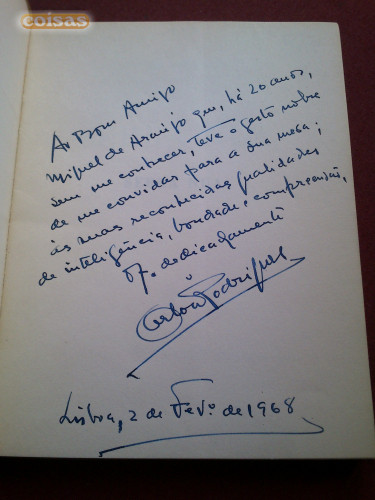 coisas
Ao Bom Amigo
Miguel de Araújo que, há 20 anos,
sem me conhecer, teve o gesto nobre
de me convidar para a sua mesa;
às suas reconhecidas qualidades
de inteligência, bondade e compreensão,
Of. dedicadamente
Rodrigues
Lisboa, 2 de Fevº. de 1968